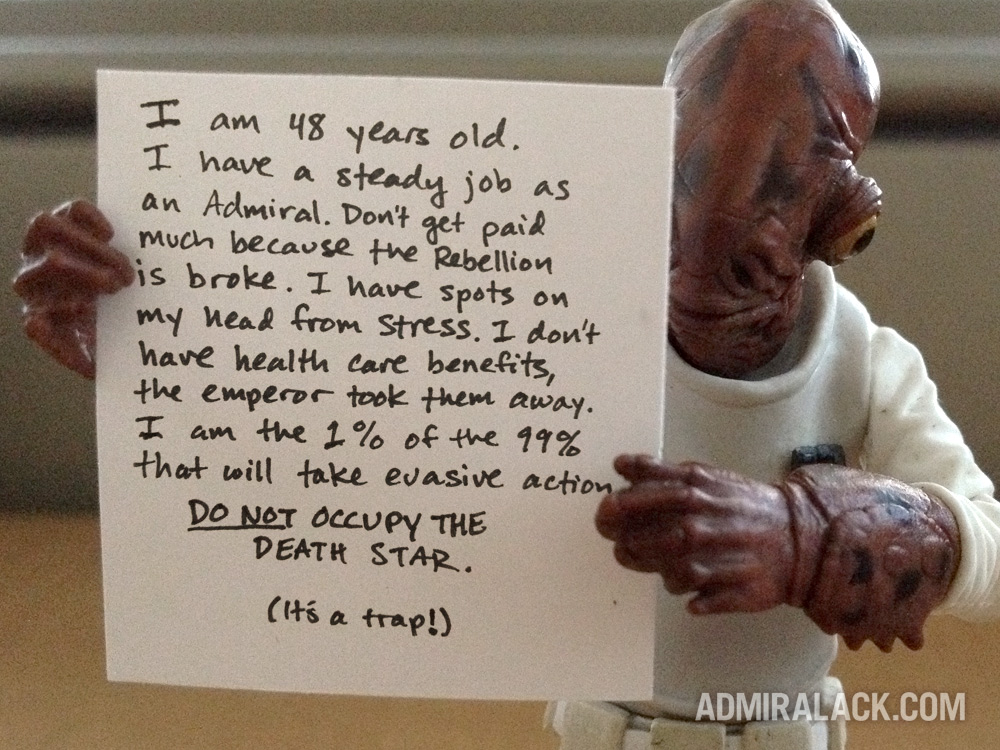 I am 48 years old.
I have a steady job as
an Admiral. Don't get paid
much because the Rebellion
is broke. I have spots on
my head from stress. I don't
have health care benefits,
the emperor took them away.
I am the 1% of the 99%
that will take evasive action.
DO NOT OCCUPY THE
DEATH STAR.
(It's a trap!)
ADMIRALACK.COM